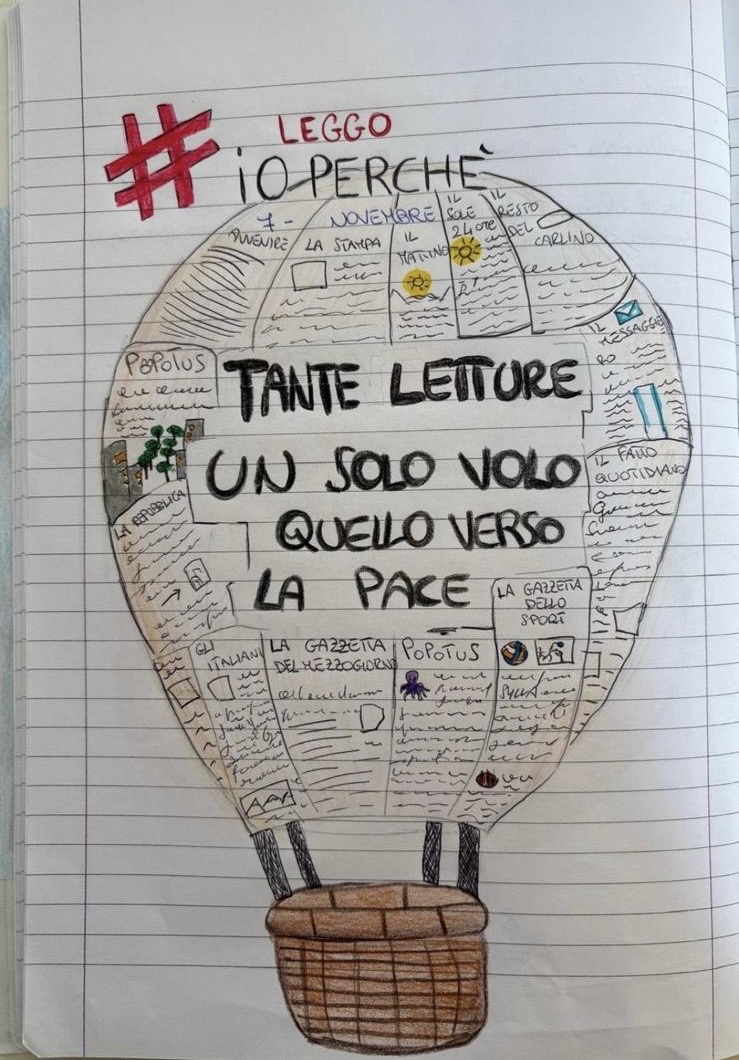 #
LEGGO
iO PERCHÈ
7 - NOVEMBRE
AVVENIRE
LA STAMPA
IL
MATTINO
IL
SOLE
24 ORE
IL
RESTO
DEL
CARLINO
IL
MESSAGGE
RO
POPOTUS
TANTE LETTURE
UN SOLO VOLO
QUELLO VERSO
LA PACE
LA REPUBBLICA
IL FATTO
QUOTIDIANO
LA GAZZETTA
DELLO
SPORT
GLI
ITALIANI
LA GAZZETTA
DEL MEZZOGIORNO
POPOTUS